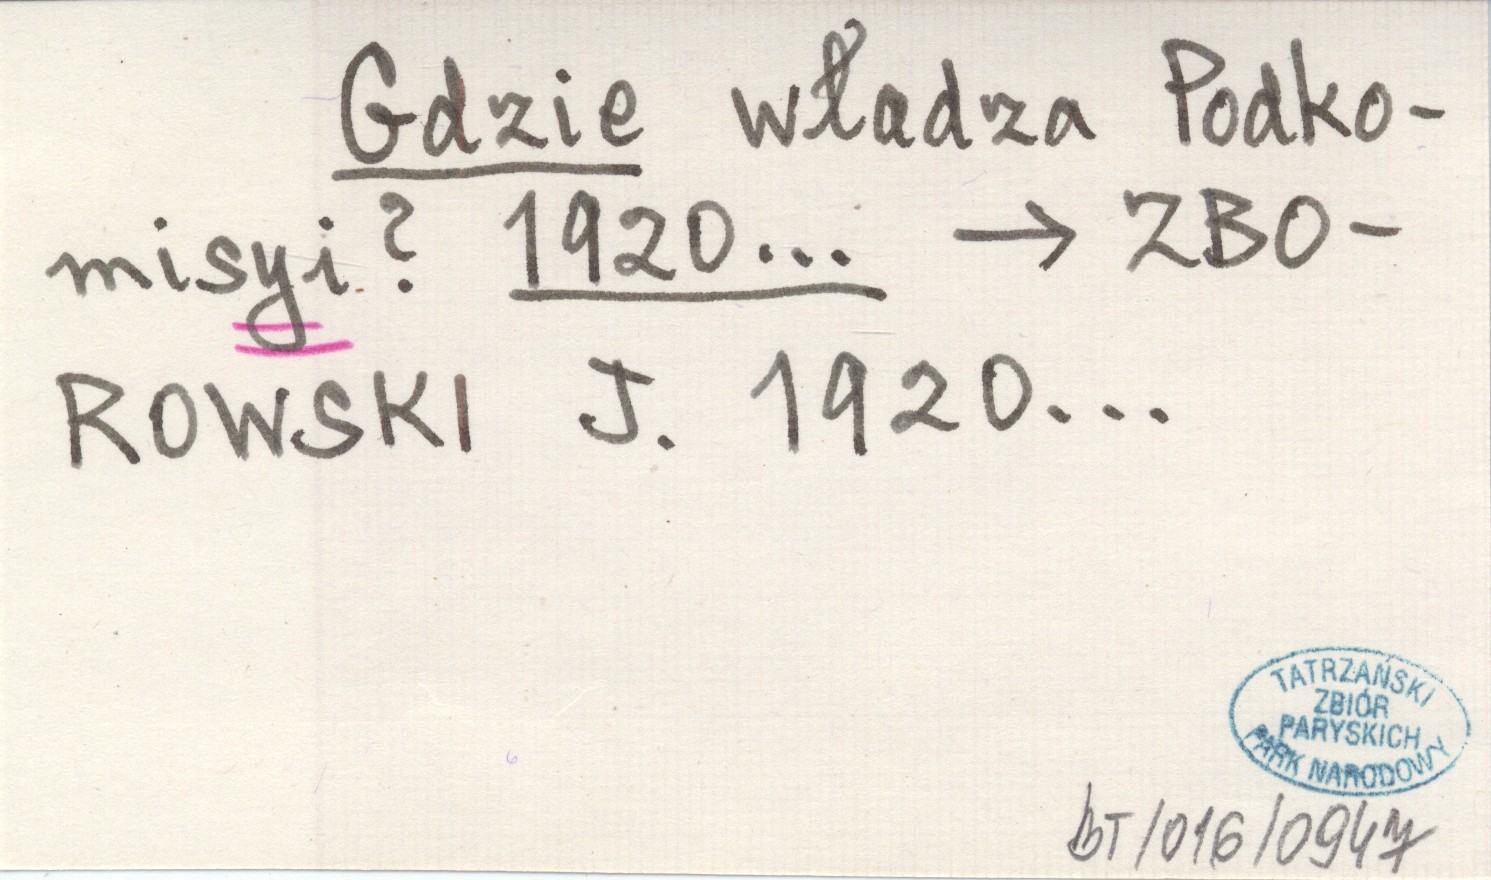 Gdzie władza Podko-
misyi? 1920... → ZBO-
ROWSKI J. 1920...
TATRZAŃSKI
ZBIÓR
PARYSKICH
PARK NARODOWY
bT/016/0947